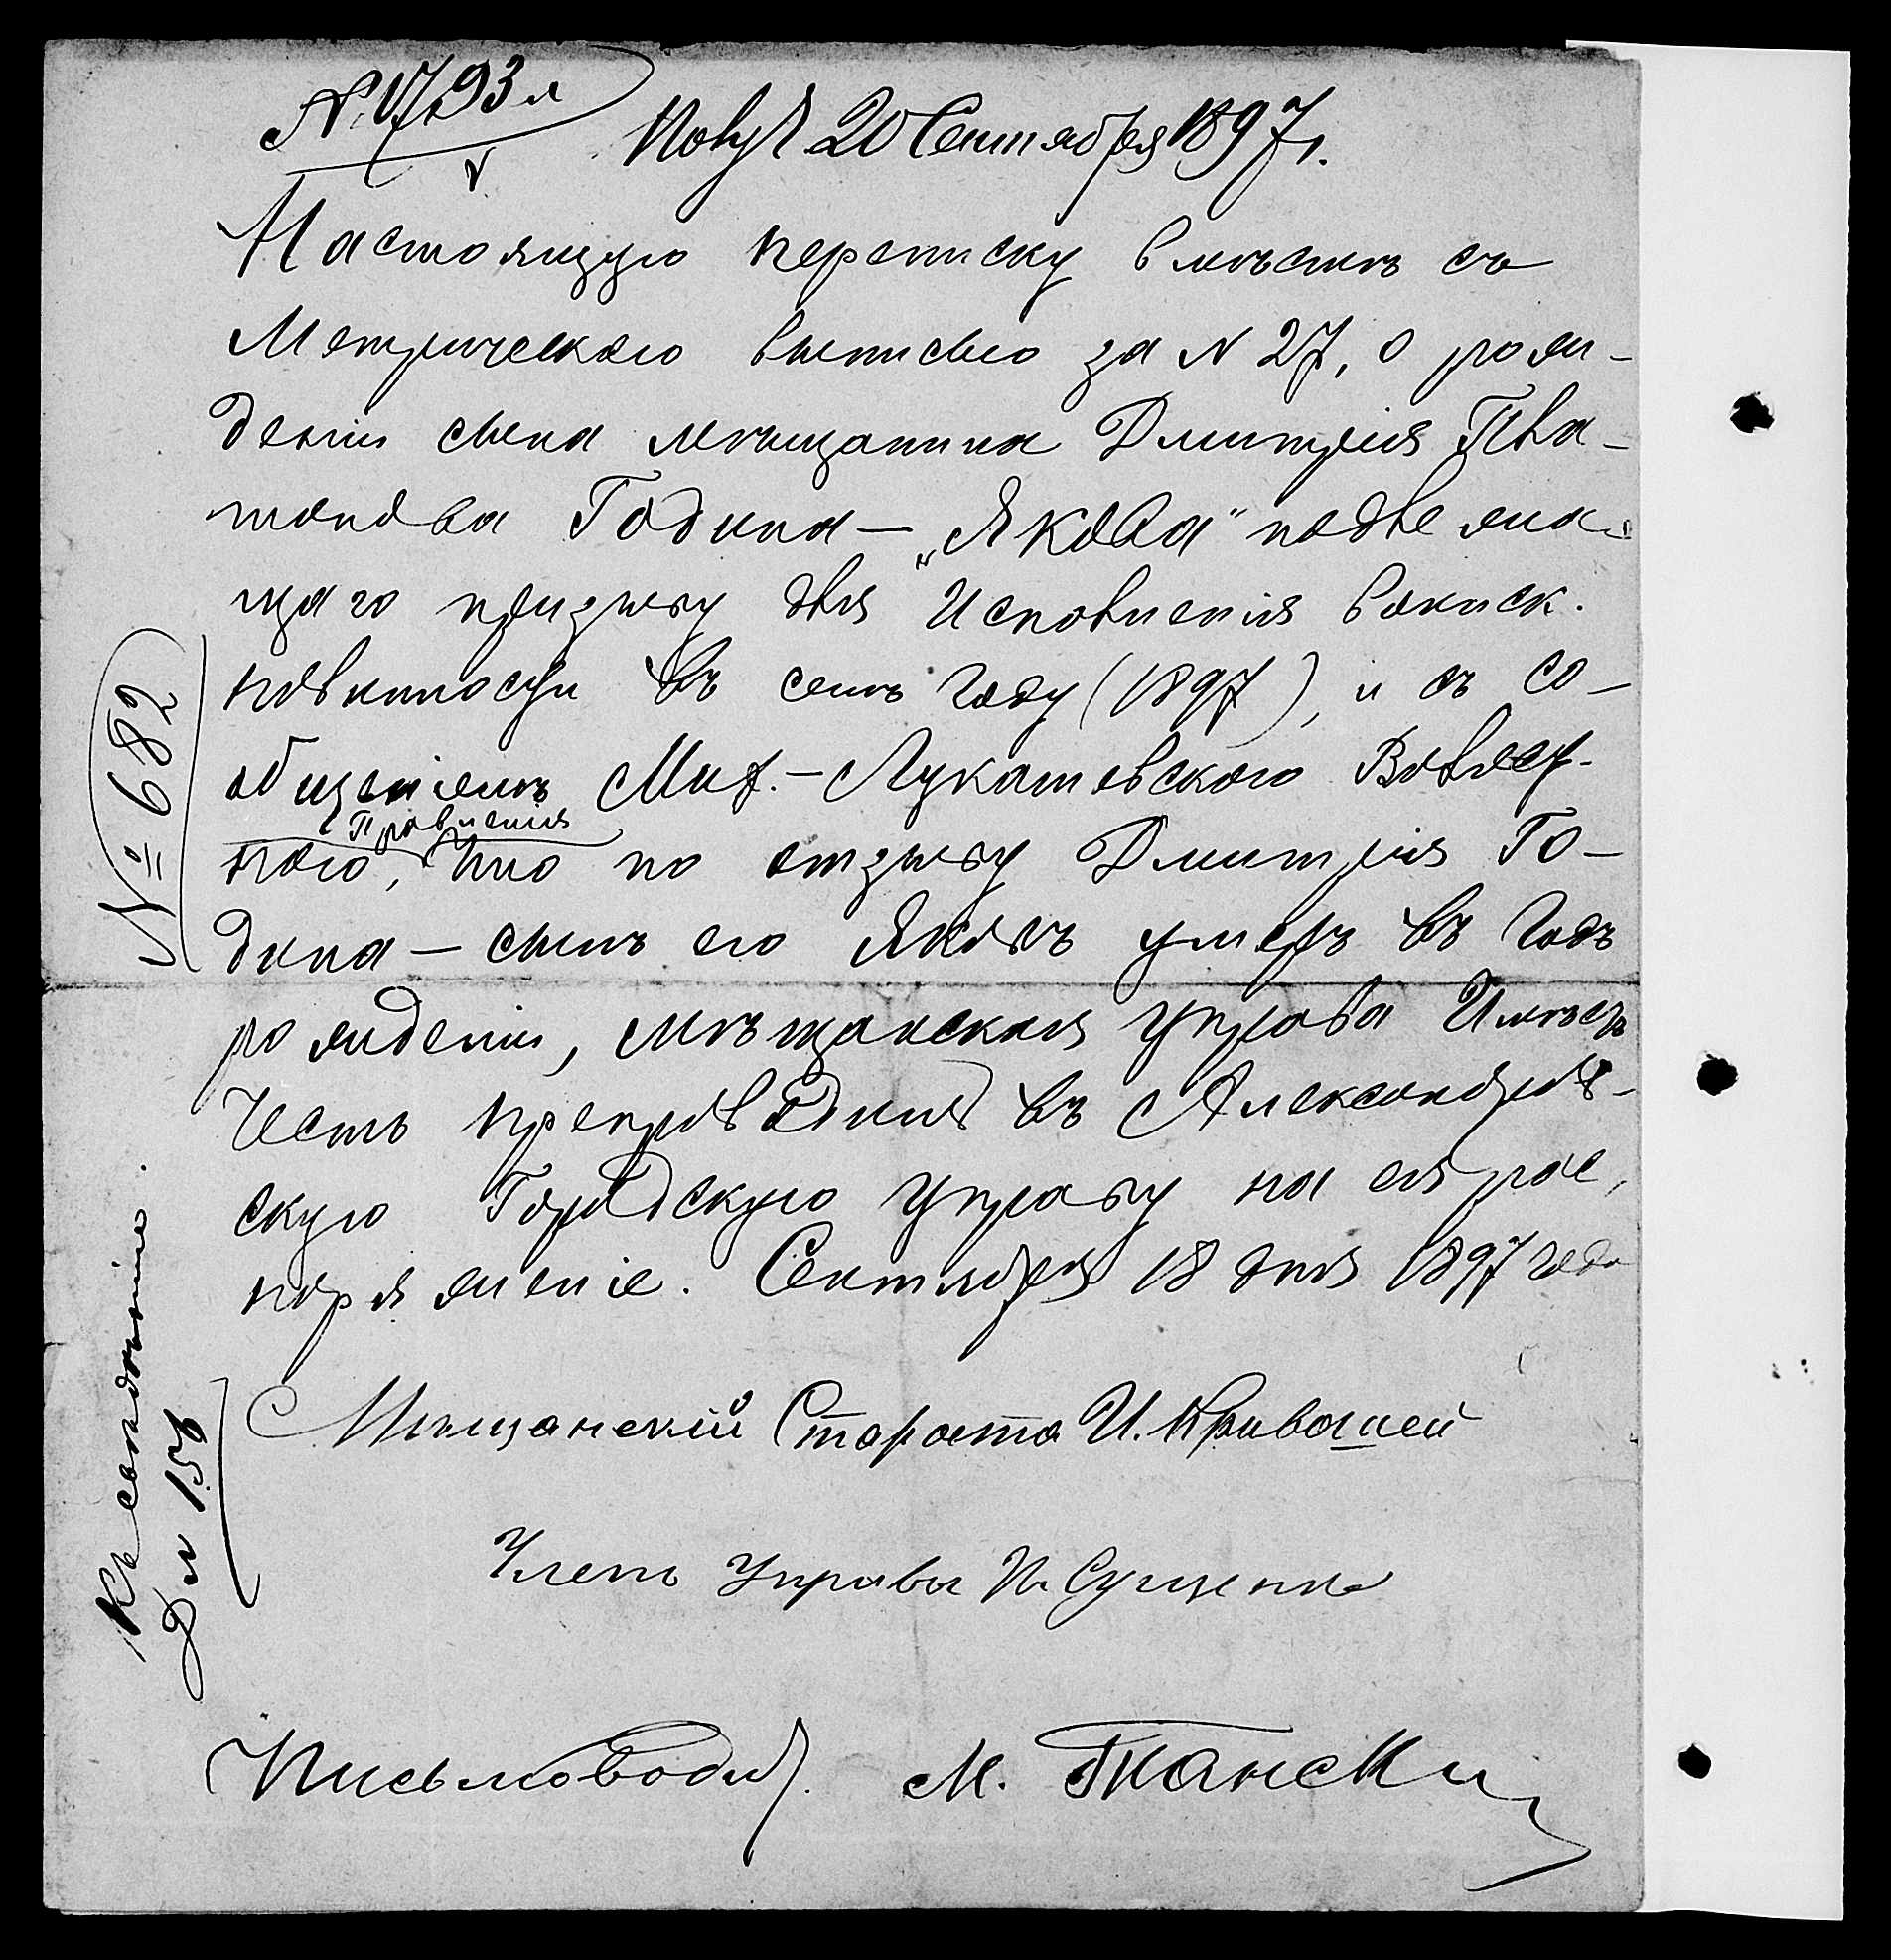 № 1793
Получ 20 Сентября 1897 г.
Настоящую переписку вместѣ съ
Метрическою выписью за N 27, о рож-
деніи сына мѣщанина Дмитрія Пла-
тонова Година — „Якова" подлежа-
щаго призыву для Исполненія воинск.
повинности въ семъ году (1897), и съ со-
общеніемъ Мих.-Лукашевского Волост-
Правленія
ного, что по отзыву Дмитрія Го-
дина — сынъ его Яковъ умеръ въ годъ
рожденія, мѣщанская управа Имѣетъ
честь препроводить въ Александров-
скую Городскую Управу на ея рас,
поряженіе. Сентября 18 дня 1897 года
Мѣщанскій Староста И. Кривошей
Членъ Управы Сущенко
Письмоводит. М. Танский
№ 682
Къ свѣдѣнію.